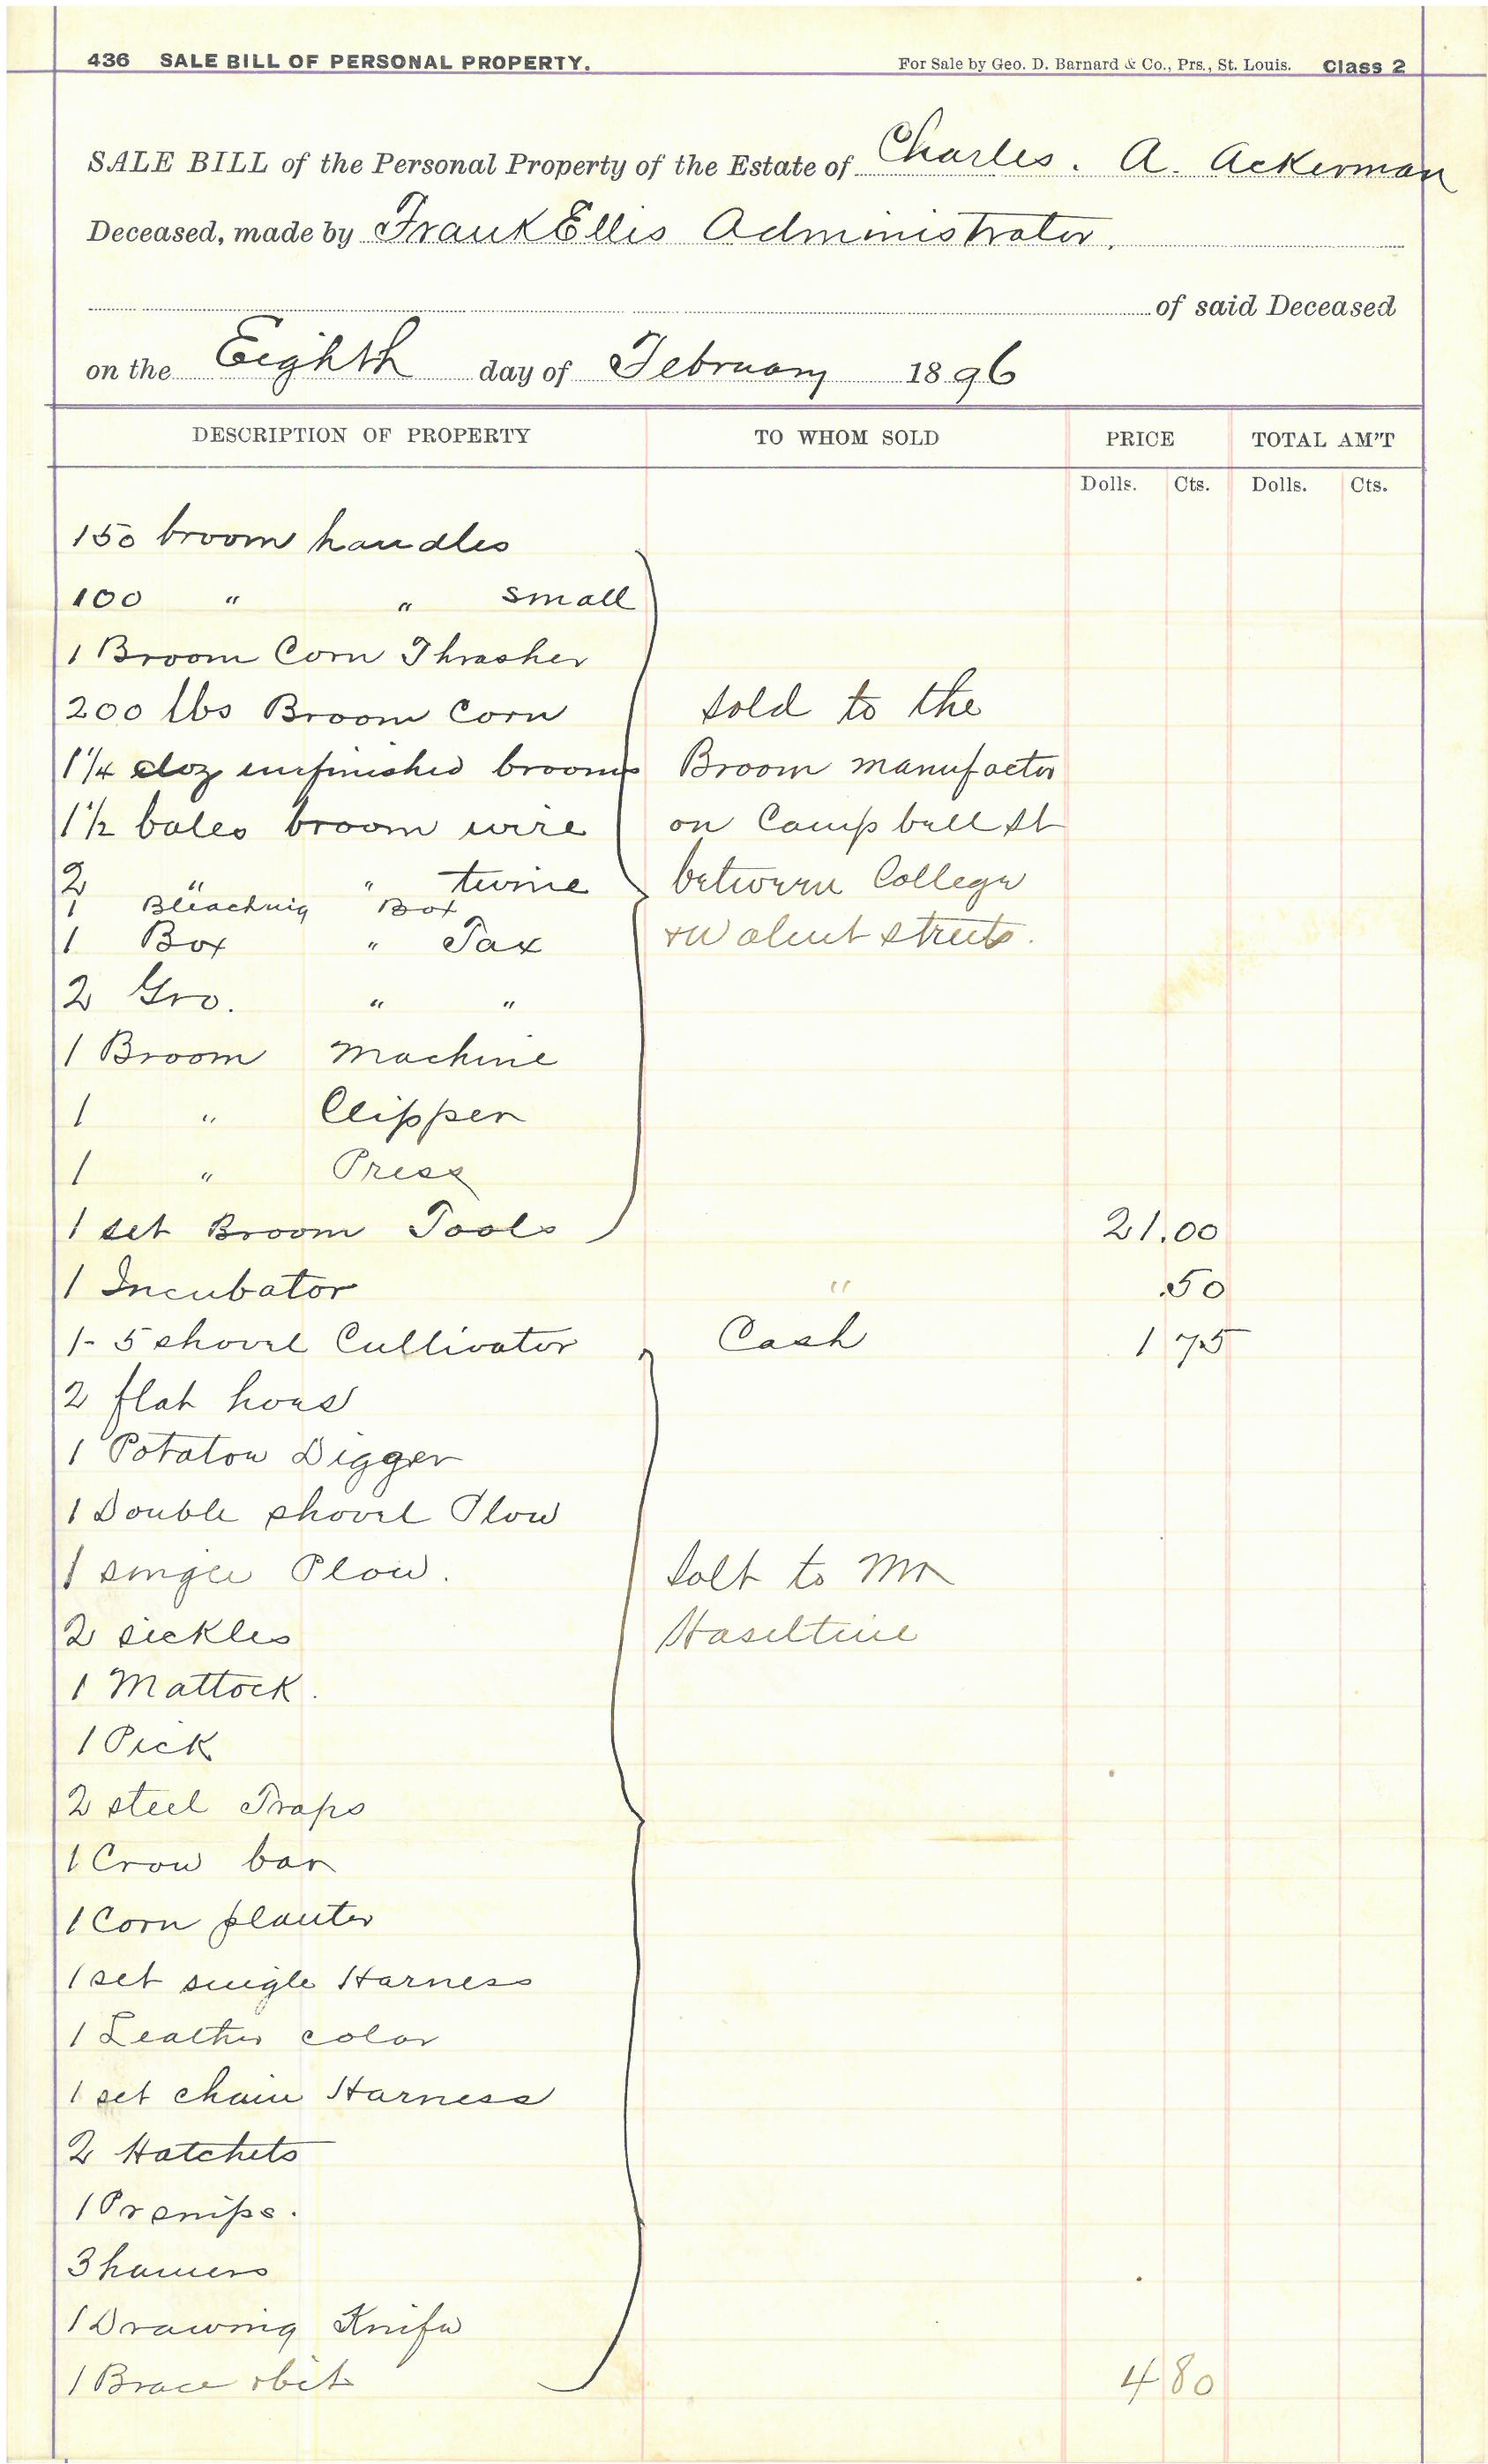 436 SALE BILL OF PERSONAL PROPERTY. For Sale by Geo. D. Barnard & Co., Prs., St. Louis. Class 2
SALE BILL of the Personal Property of the Estate of Charles. A. Ackerman
Deceased, made by Frank Ellis Administrator.
of said Deceased
on the Eighth day of February 1896
DESCRIPTION OF PROPERTY TO WHOM SOLD PRICE TOTAL AM'T
Dolls. Cts. Dolls. Cts.
150 broom handles
100 " " small
1 Broom Corn Thrasher
200 lbs Broom Corn sold to the
1 1/4 doz unfinished brooms Broom manufactor
1 1/2 bales broom wire on Campbell St
2 " " twine between College
1 Bleachnig Box
1 Box " Tax & Walnut streets.
2 Gro. " "
1 Broom Machine
1 " Clipper
1 " Press
1 set Broom Tools 21.00
1 Incubator " .50
1- 5 shovel Cultivator Cash 1 75
2 flat hoes
1 Potatoe Digger
1 Double shovel Plow
1 single Plow. solt to Mr
2 sickles Haseltine
1 Mattock.
1 Pick
2 steel Traps
1 Crow bar
1 Corn planter
1 set single Harness
1 Leather color
1 set chain Harness
2 Hatchets
1 Pr snips.
3 hamers
1 Drawing Knife
1 Brace & bit 4 80